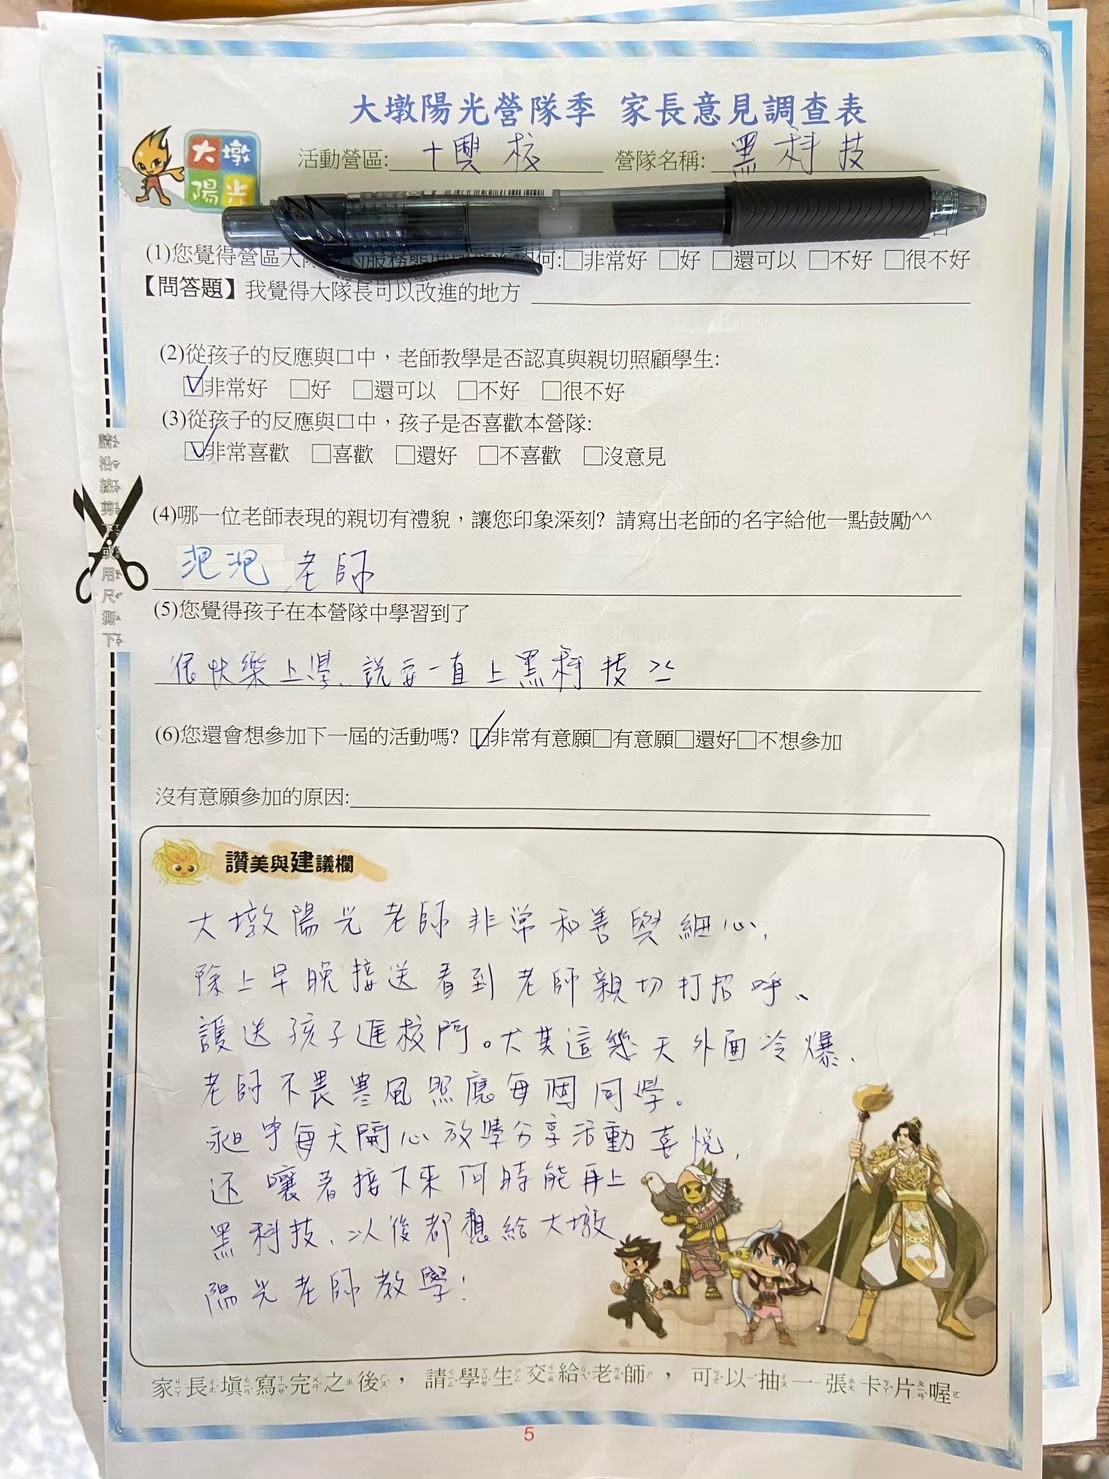 大墩陽光營隊季 家長意見調查表
大墩
陽光
活動營區: 十興校 營隊名稱: 黑科技
(1)您覺得營區大隊 的服務態度 何:□非常好 □好 □還可以 □不好 □很不好
【問答題】我覺得大隊長可以改進的地方
(2)從孩子的反應與口中,老師教學是否認真與親切照顧學生:
☑非常好 □好 □還可以 □不好 □很不好
(3)從孩子的反應與口中,孩子是否喜歡本營隊:
☑非常喜歡 □喜歡 □還好 □不喜歡 □沒意見
(4)哪一位老師表現的親切有禮貌,讓您印象深刻? 請寫出老師的名字給他一點鼓勵^^
泡泡 老師
(5)您覺得孩子在本營隊中學習到了
很快樂上學、說要一直上黑科技
(6)您還會想參加下一屆的活動嗎? ☑非常有意願□有意願□還好□不想參加
沒有意願參加的原因:
讚美與建議欄
大墩陽光老師非常和善與細心,
除上早晚接送看到老師親切打招呼、
護送孩子進校門。尤其這幾天外面冷爆,
老師不畏寒風照應每個同學。
每天開心放學分享活動喜悅,
还嚷著接下來何時能再上
黑科技、以後都想給大墩
陽光老師教學!
家長填寫完之後,請學生交給老師,可以抽一張卡片喔
5